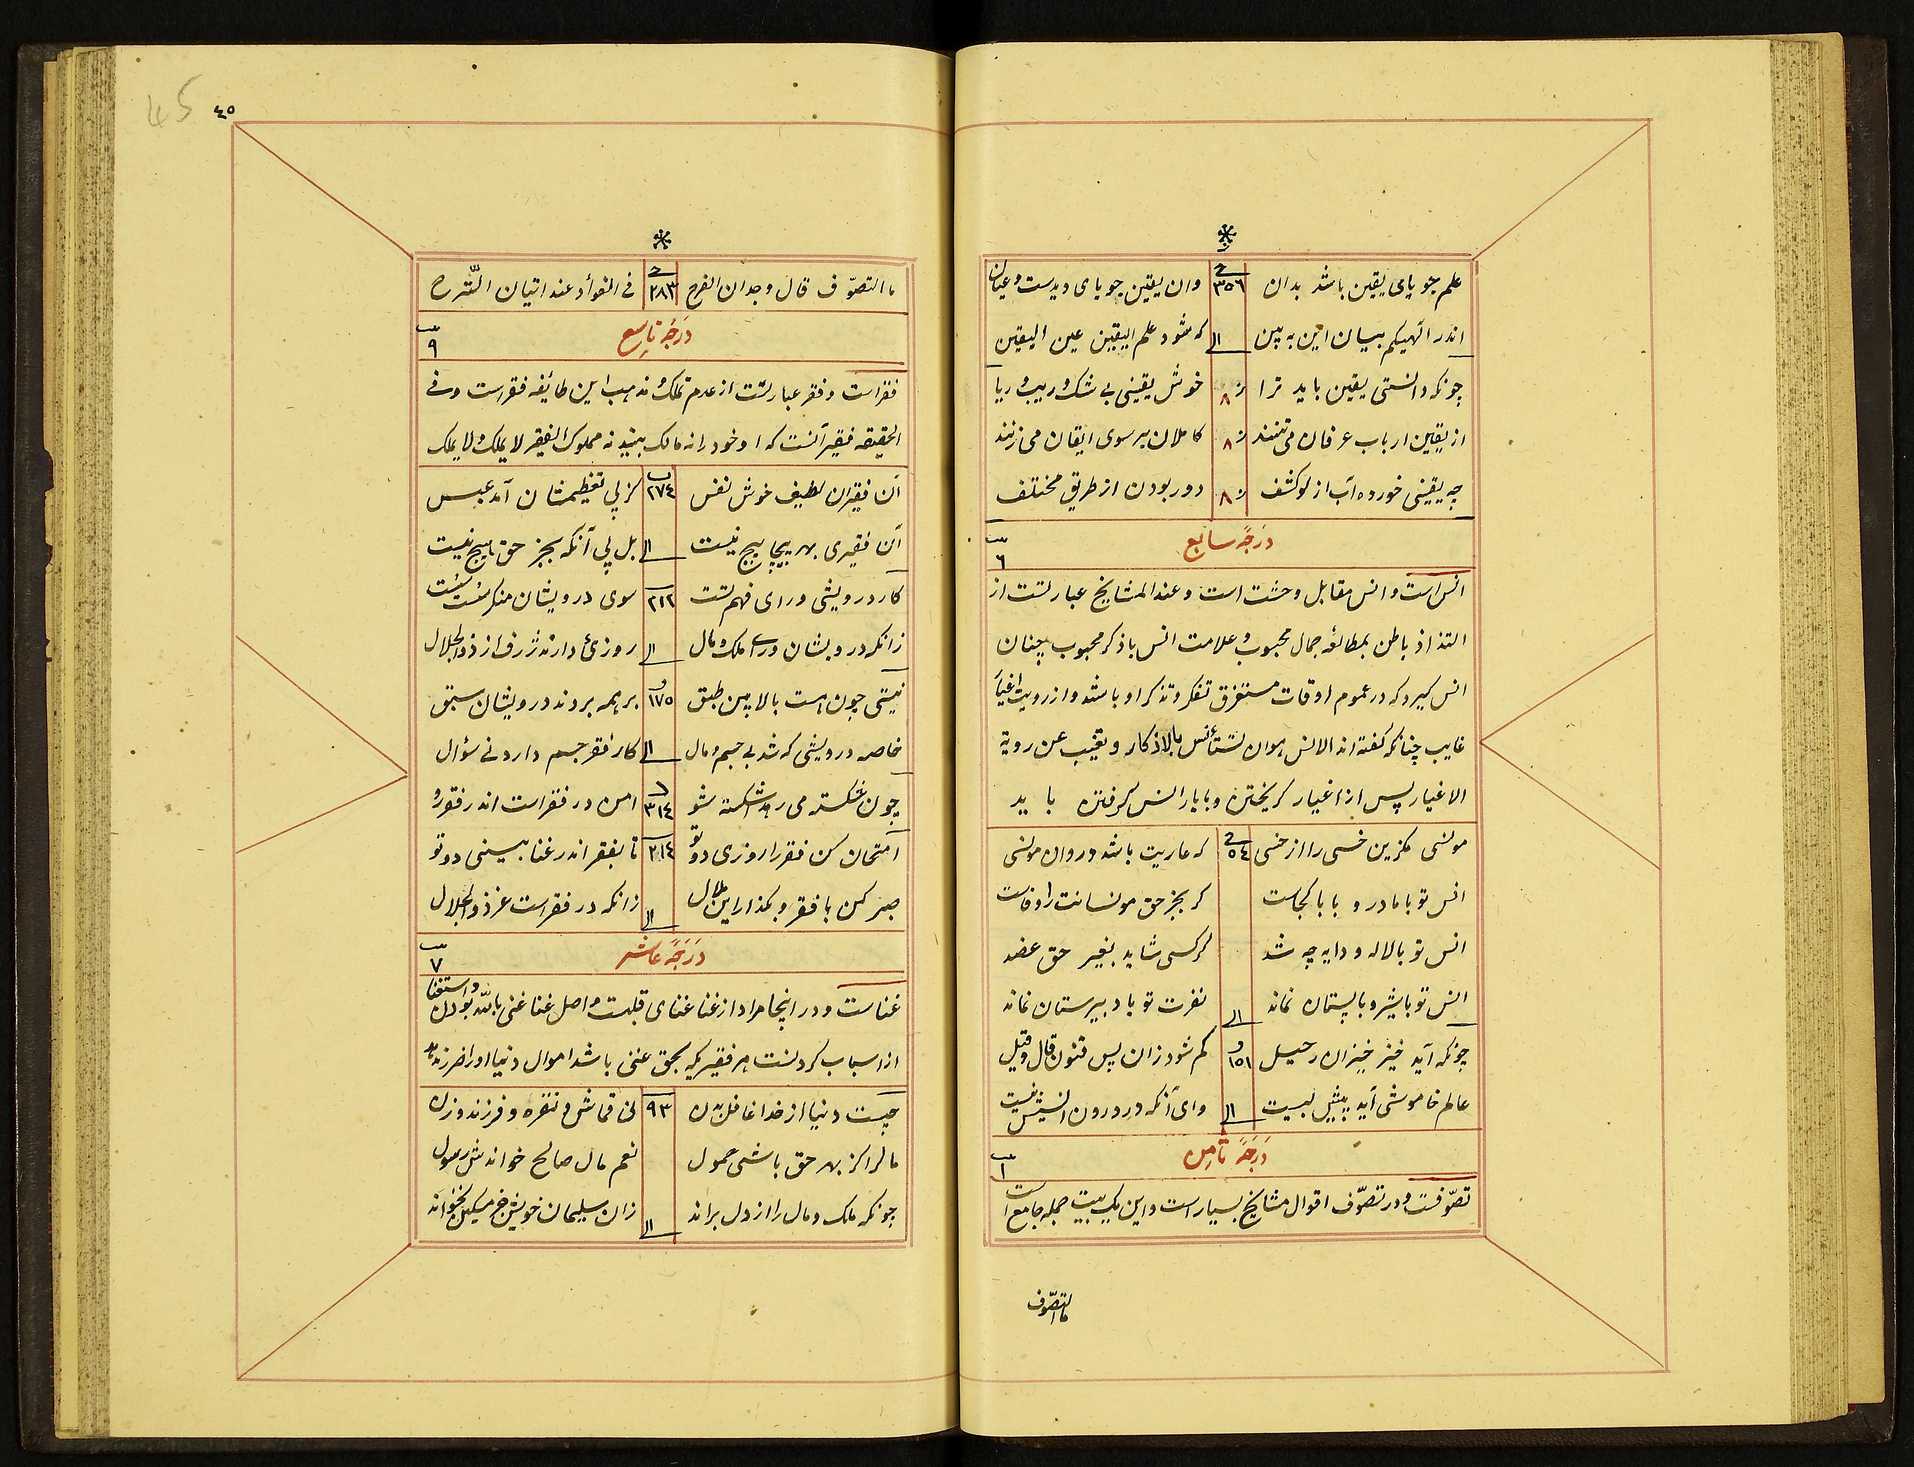 علم جویای یقین باشد بدان ٣٥٦ وان یقین جویای دیدست و عیان
اندر الهیکم بیان این به بین الی که شود علم الیقین عین الیقین
چونکه دانستی یقین باید ترا ٨ خوش یقینی بی شک و ریب و ریا
از یقین ارباب عرفان می تنند ٨ کاملان پر سوی ایقان می زنند
چه یقینی خورده آب از لوکشف ٨ دور بودن از طریق مختلف
درجهٔ سابع ٦
انس است و انس مقابل وحشت است و عند المشایخ عبارتست از
التذاذ باطن بمطالعهٔ جمال محبوب و علامت انس با ذکر محبوب چنان
انس کیرد که در عموم اوقات مستغرق تفکر و تذکر او باشد و از رویت اغیار
غایب چنانکه کفته اند الانس هو ان تستأنس بالاذکار و تغیب عن رویة
الاغیار پس از اغیار کریختن و با یار انس کرفتن باید
مونسی مکزین خسی را از خسی ٥٤ که عاریت باشد در وان مونسی
انس تو با مادر و بابا کجاست کر بجز حق مونسانت را وفاست
انس تو با لاله و دایه چه شد کر کسی شاید بغیر حق عضد
انس تو با شیر و با پستان نماند الی نفرت تو با دبیرستان نماند
چونکه آید خیز خیزان رحیل ١٥١ کم شود زان پس فنون قال و قیل
عالم خاموشی آید پیش بیست الی وای آنکه در درون انسیش نیست
درجهٔ ثامن ١
تصوفست و در تصوف اقوال مشایخ بسیار است و این یک بیت جمله جامع است
ماالتصوف
٤٥
45
ماالتصوّف قال وجدان الفرح ٢٨٣ فی الفوأد عند اتیان التّرح
درجهٔ تاسع ٩
فقر است و فقر عبارتست از عدم تملک و مذهب این طائفه فقر است و فی
الحقیقه فقیر آنست که او خود را نه مالک بیند نه مملوک الفقیر لا یملک و لا یملک
آن فقیران لطیف خوش نفس ٢٧٤ کز پی تعظیمشان آمد عبس
آن فقیری بهر پیچا پیچ نیست الی بل پی آنکه بجز حق هیچ نیست
کار درویشی ورای فهم تست ٢١٢ سوی درویشان منکر سست سست
زانکه درویشان ورای ملک و مال الی روزئ دارند ژرف از ذوالجلال
نیستی چون هست بالاین طبق ١٧٥ بر همه بردند درویشان سبق
خاصه درویشی که شد بی جسم و مال الی کار فقر جسم دارد نی سؤال
چون شکسته می رهد اشکسته شو ٣١٤ امن در فقر است اندر فقر رو
امتحان کن فقر را روزی دو تو ٢١٤ تا بفقر اندر غنا بینی دو تو
صبر کن با فقر و بکذار این ملال الی زانکه در فقر است عز ذوالجلال
درجهٔ عاشر ٧
غناست و در اینجا مراد از غنا غنای قلبست و اصل غنا غنی بالله بودن و استغنا
از اسباب کردنست هر فقیریکه بحق غنی باشد اموال دنیا او را ضرر ندهد
چیست دنیا از خدا غافل بدن ٩٣ نی قماش و نقره و فرزند و زن
مال را کز بهر حق باشی حمول نعم مال صالح خواندش رسول
چونکه ملک و مال را از دل براند الی زان سلیمان خویش جز مسکین نخواند